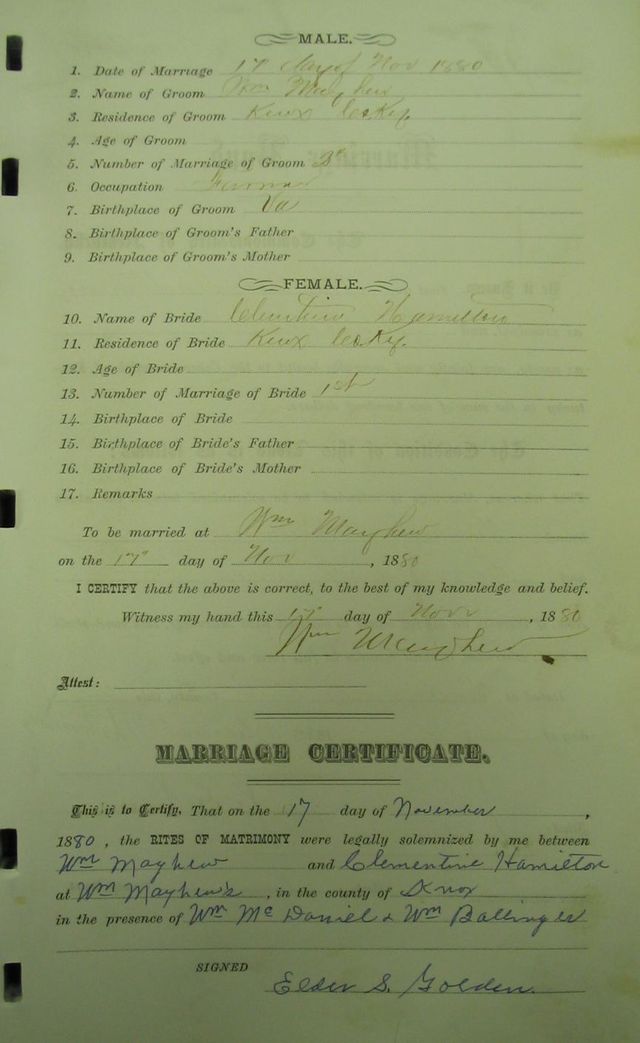 MALE.
1. Date of Marriage 17 day of Nov 1880
2. Name of Groom Wm Mayhew
3. Residence of Groom Knox Co Ky.
4. Age of Groom
5. Number of Marriage of Groom
6. Occupation Farmer
7. Birthplace of Groom Va
8. Birthplace of Groom's Father
9. Birthplace of Groom's Mother
FEMALE.
10. Name of Bride Clemtine Hamilton
11. Residence of Bride Knox Co Ky.
12. Age of Bride
13. Number of Marriage of Bride 1st
14. Birthplace of Bride
15. Birthplace of Bride's Father
16. Birthplace of Bride's Mother
17. Remarks
To be married at Wm Mayhew
on the 17 day of Nov, 1880
I CERTIFY that the above is correct, to the best of my knowledge and belief.
Witness my hand this 17 day of Nov, 1880
Wm Mayhew
Attest:
MARRIAGE CERTIFICATE.
This is to Certify, That on the 17 day of November,
1880, the RITES OF MATRIMONY were legally solemnized by me between
Wm Mayhew and Clementine Hamilton
at Wm Mayhew's, in the county of Knox
in the presence of Wm McDaniel & Wm Ballinger
SIGNED
Elder S. Golden.